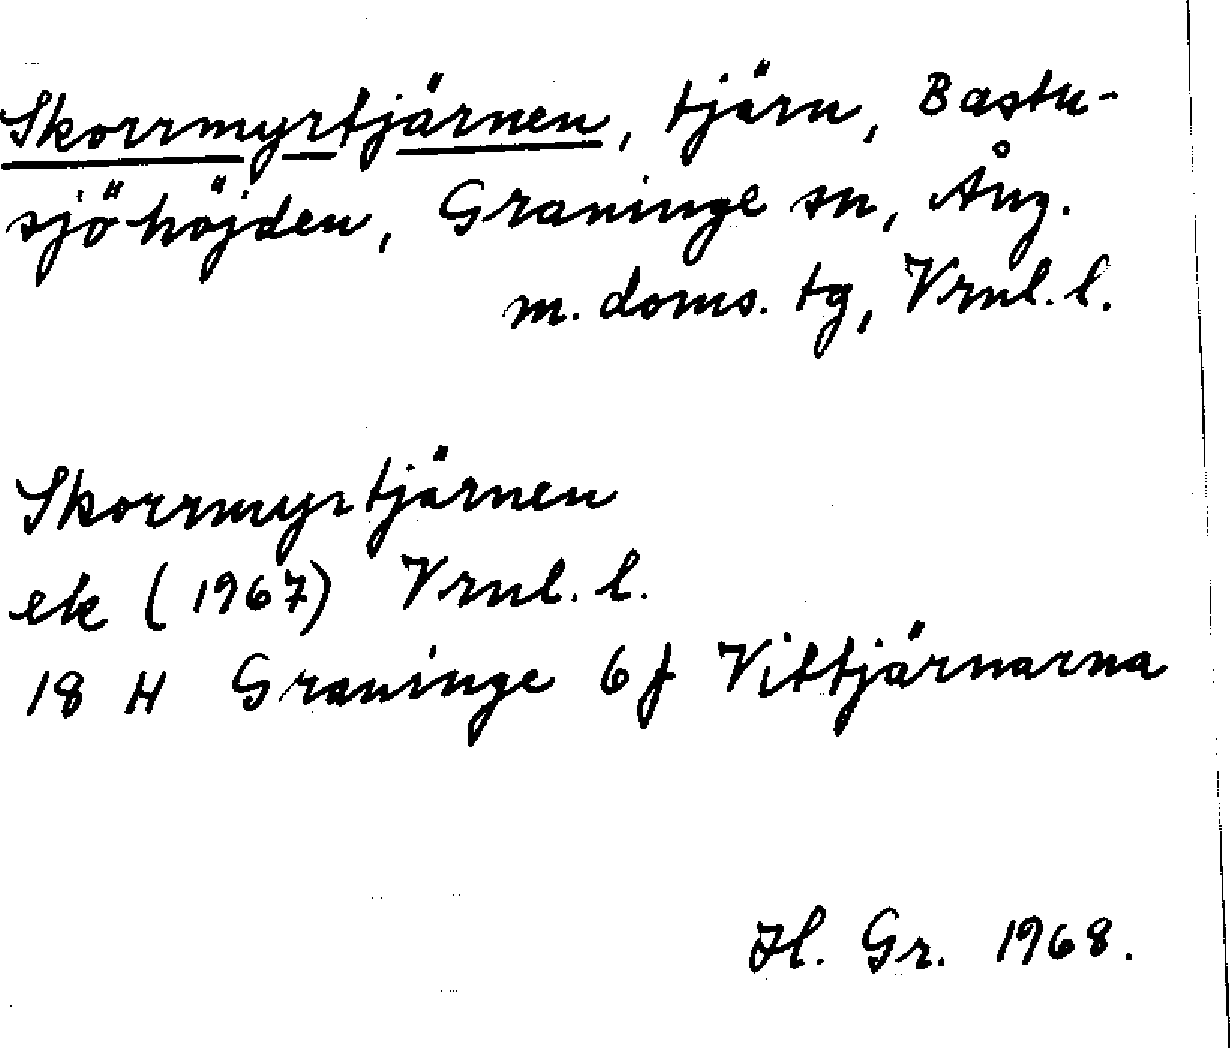 Skorrmyrtjärnen, tjärn, Bastu-
sjöhöjden, Graninge sn, Ång.
m. doms. tg, Vrnl. l.
Skorrmyrtjärnen
ek (1967) Vrnl. l.
18 H Graninge 6 f Vittjärnarna
Hl. Gr. 1968.